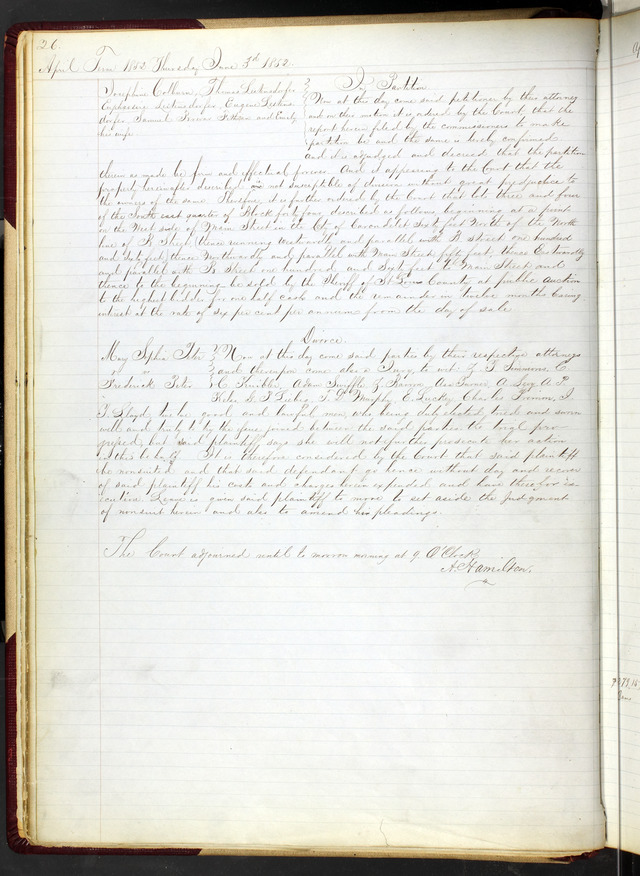 26.
April Term 1852 Thursday June 3rd 1852.
Josephine Cothern, Thomas
In Partition
Eugene
Now at this day come said petitioners by their attorney
Samuel and Emily
and on their motion it is ordered by the Court that the
his wife
report herein filed by the commissioners to make
partition be and the same is hereby confirmed
and it is adjudged and decreed that the partition
therein as made be firm and effectual forever. And it appearing to the Court that the
property hereinafter described is not susceptible of division without great prejudice to
the owners of the same. Therefore it is further ordered by the Court that lots three and four
of the South east quarter of Block forty four described as follows beginning at a point
on the West side of Main Street in the City of Carondelet Sixty feet North of the North
line of R Street thence running westwardly and parallel with R Street one hundred
and sixty feet, thence Northwardly and parallel with Main Street fifty feet, thence Eastwardly
and parallel with R Street one hundred and sixty feet to Main Street and
thence to the beginning be sold by the Sheriff of St Louis County at public auction
to the highest bidder for one half cash and the remainder in twelve months bearing
interest at the rate of six per cent per annum from the day of sale
Divorce
Mary Sophia
Now at this day come said parties by their respective attorneys
vs "
and thereupon come also a Jury to wit: Z. T. Simmons, C
Frederick
C. Adam A. A. P.
T. Murphy E. Luckey Charles J.
J. Lloyd, twelve good and lawful men, who being duly elected, tried and sworn
well and truly to try the issue joined between the said parties the trial pro-
gressed, but said plaintiff says she will not further prosecute her action
in this behalf. It is therefore considered by the Court that said plaintiff
be nonsuited and that said defendant go hence without day and recover
of said plaintiff his costs and charges herein expended and have therefor ex-
ecution Leave is given said plaintiff to move to set aside the Judgment
of nonsuit herein and also to amend her pleadings.
The Court adjourned until to morrow morning at 9 O'Clock
A. Hamilton.